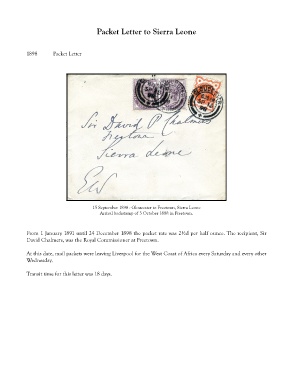 Packet Letter to Sierra Leone
1898 Packet Letter
Sir David P Chalmers
Freetown
Sierra Leone
15 September 1898 - Gloucester to Freetown, Sierra Leone
Arrival backstamp of 3 October 1898 in Freetown.
From 1 January 1891 until 24 December 1898 the packet rate was 2½d per half ounce. The recipient, Sir
David Chalmers, was the Royal Commissioner at Freetown.
At this date, mail packets were leaving Liverpool for the West Coast of Africa every Saturday and every other
Wednesday.
Transit time for this letter was 18 days.